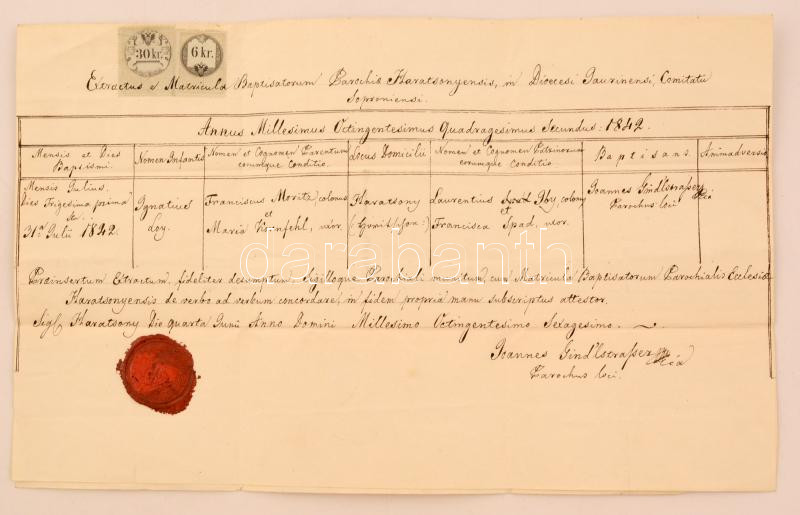 30 kr. 6 kr.
Extractus e Matricula Baptisatorum Parochiæ Haratsonyensis, in Diœcesi Jaurinensi, Comitatu
Soproniensi.
Annus Millesimus Octingentesimus Quadragesimus Secundus: 1842.
Mensis et Dies Baptismi. Nomen Infantis Nomen et Cognomen Parentum eorumque Conditio. Locus Domicilii Nomen et Cognomen Patrinorum eorumque Conditio Baptisans. Animadversio
Mensis Julius.
Dies Trigesima prima
31ª Julii 1842.
Ignatius
Loy.
Franciscus Moritz, colonus
et
Maria, uxor.
Haratsony
Laurentius colonus
et
Francisca Spad, uxor.
Joannes Gind'lstrasser
Parochus loci
Præinsertum Extractum, fideliter desumptum, Sigilloque Parochiali munitum, cum Matricula Baptisatorum Parochialis Ecclesiæ
Haratsonyensis de verbo ad verbum concordare, in fidem propria manu subscriptus attestor.
Sigl Haratsony Die quarta Junii Anno Domini Millesimo Octingentesimo Sexagesimo.
Joannes Gind'lstrasser
Parochus loci.
darabanth